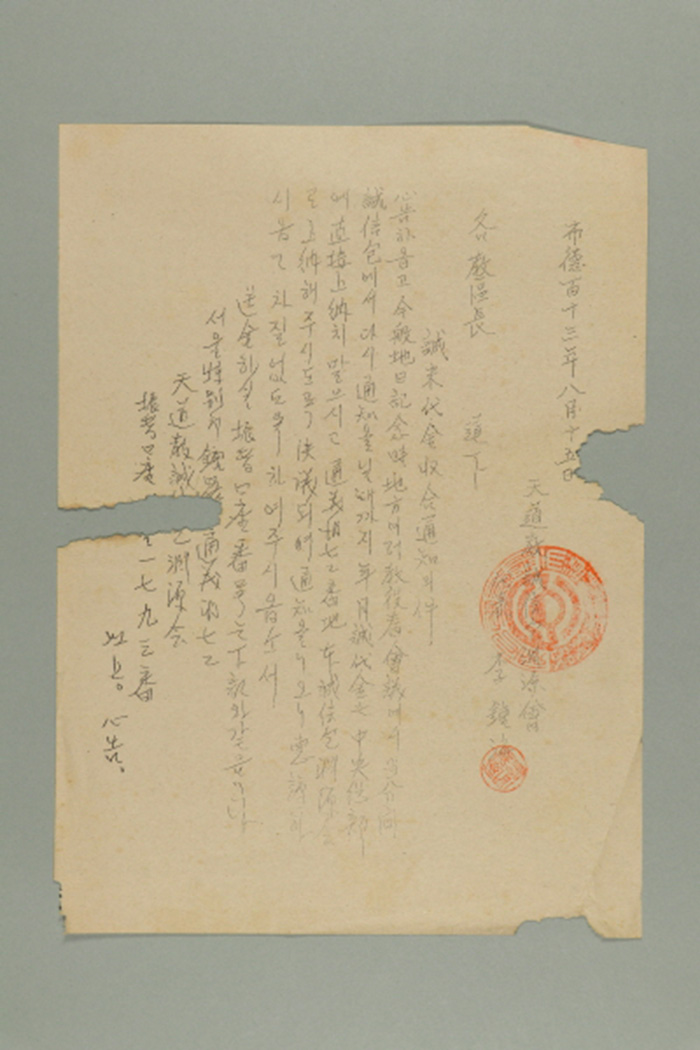 布德百十三年八月十五日
天道敎誠信包淵源會
李鍾
各敎區長 道下
誠米代金收合通知의件
心告하옵고 今般地日記念時地方여러敎役者會議에서
誠信包에서 다시通知을낼때까지年月誠代金는中央總部
에直接上納치말으시고通義洞七二番地本誠信包淵源會
로上納해주시도록決議되여通知을
시옵고 차질없도록하여주시옵소서
送金하실振替口座番号는下記와같읍니다
서울特別市鍾路 通義洞七二
天道敎誠 包淵源会
振替口座 一七九三番
以上 心告